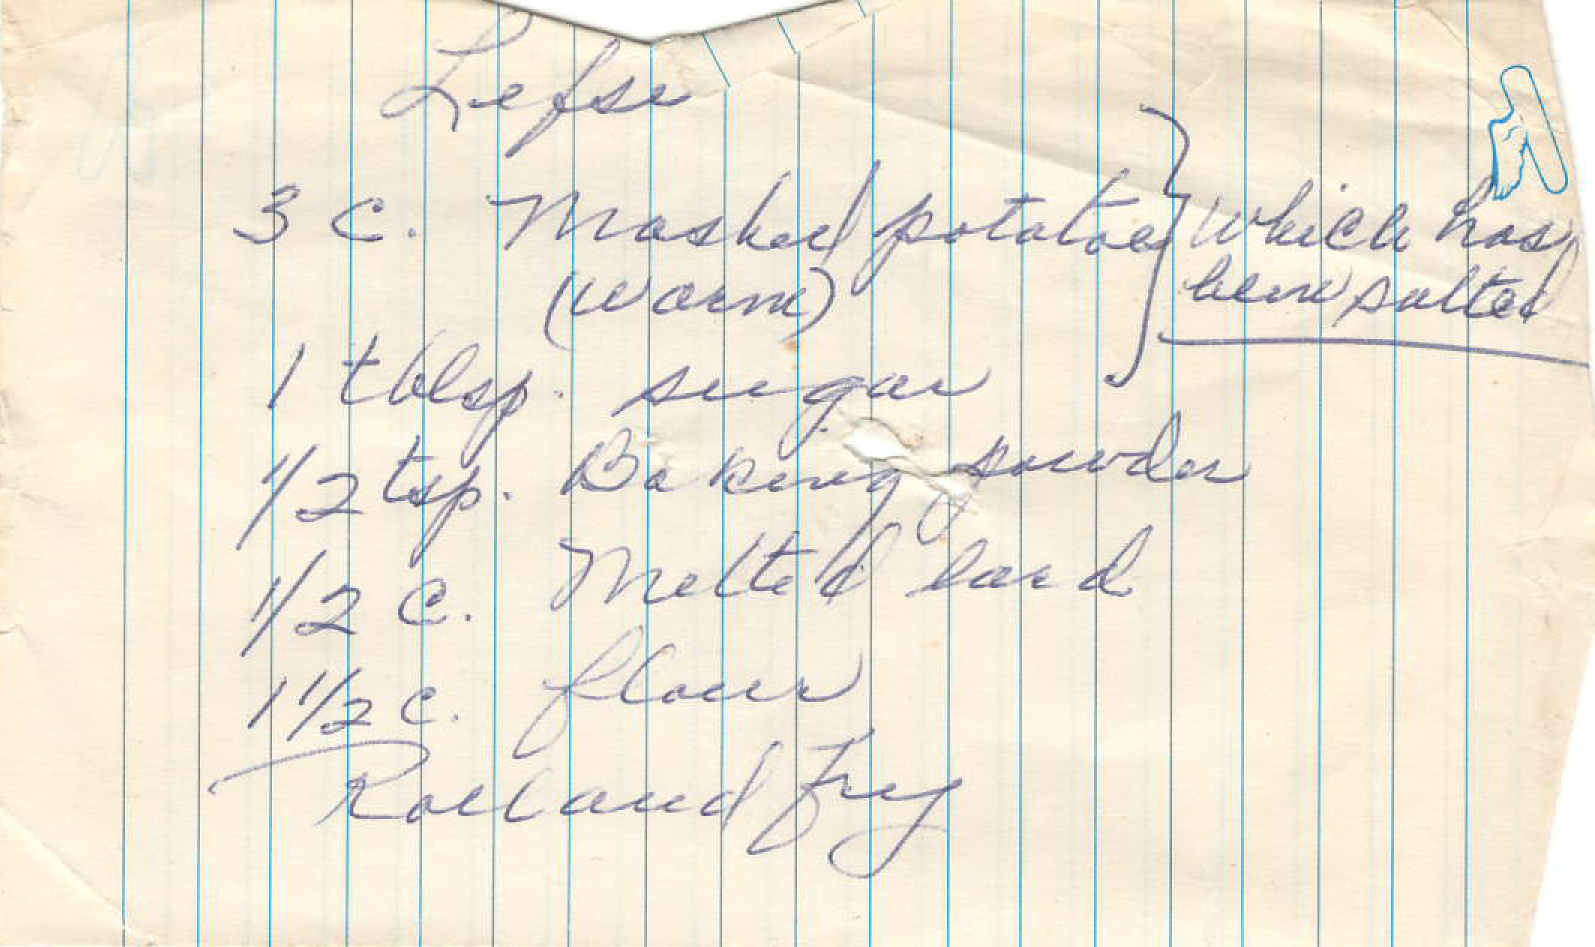 Lefse
3 c. Mashed potatoes } which has
(warm) been salted
1 tblsp. sugar
1/2 tsp. Baking powder
1/2 c. Melted lard
1 1/2 c. flour
Roll and Fry